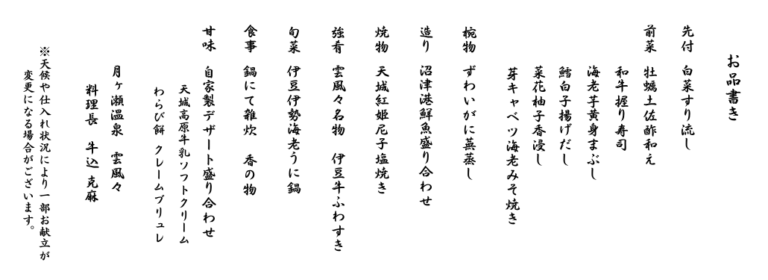 お品書き
先付 白菜すり流し
前菜 牡蠣土佐酢和え
和牛握り寿司
海老芋黄身まぶし
鱈白子揚げだし
菜花柚子香浸し
芽キャベツ海老みそ焼き
椀物 ずわいがに蕪蒸し
造り 沼津港鮮魚盛り合わせ
焼物 天城紅姫尼子塩焼き
強肴 雲風々名物 伊豆牛ふわすき
旬菜 伊豆伊勢海老うに鍋
食事 鍋にて雑炊 香の物
甘味 自家製デザート盛り合わせ
天城高原牛乳ソフトクリーム
わらび餅 クレームブリュレ
月ヶ瀬温泉 雲風々
料理長 牛込 克麻
※天候や仕入れ状況により一部お献立が
変更になる場合がございます。